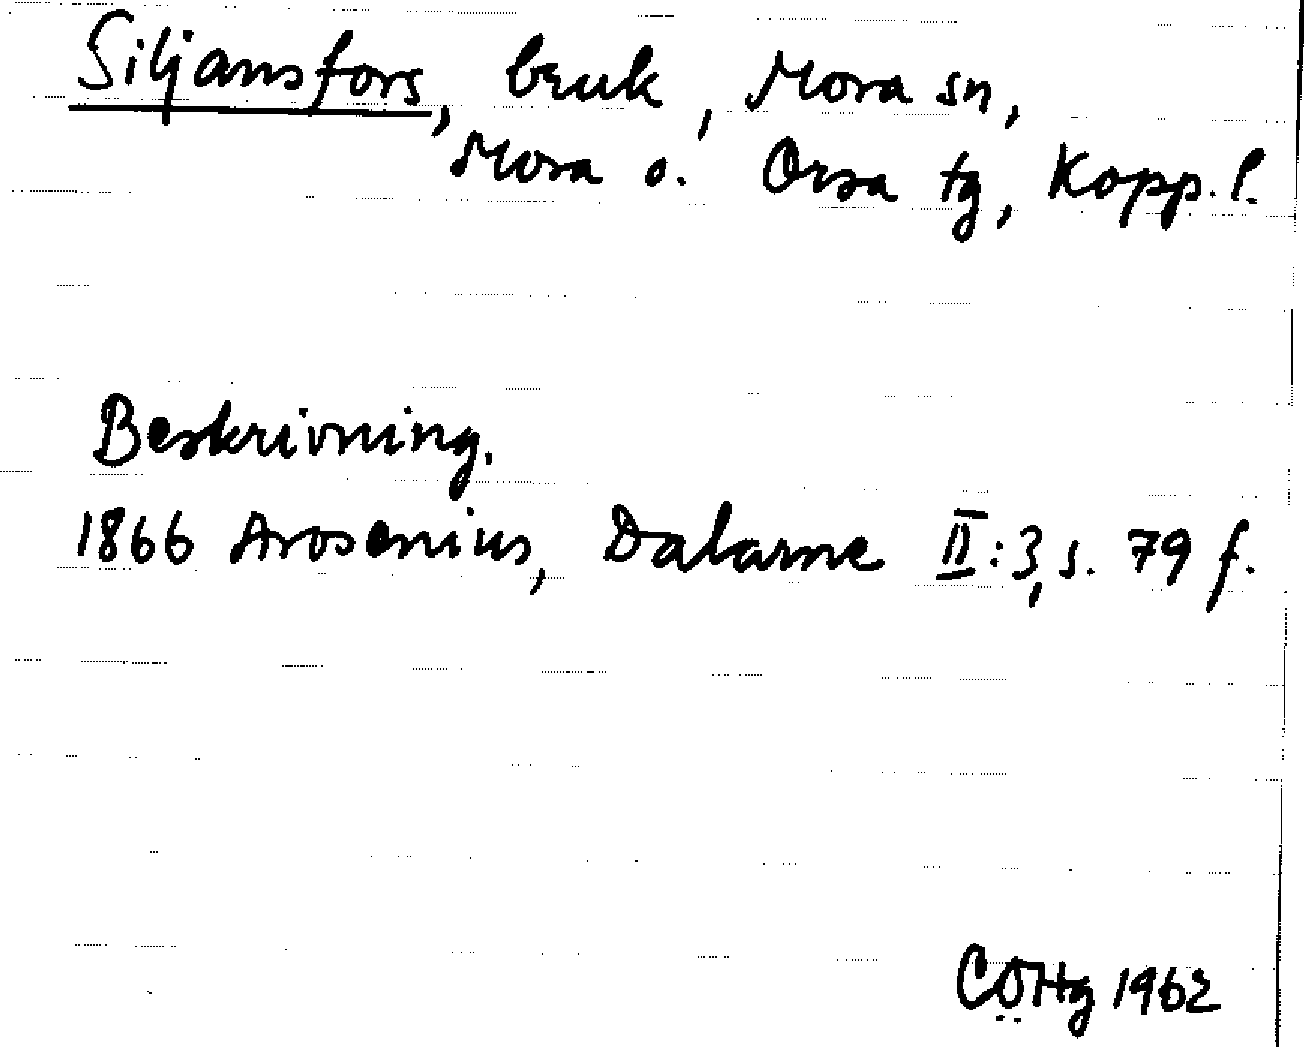 Siljansfors, bruk, Mora sn,
Mora o. Orsa tg, Kopp. l.
Beskrivning.
1866 Arosenius, Dalarne II:3, s. 79 f.
COHg 1962